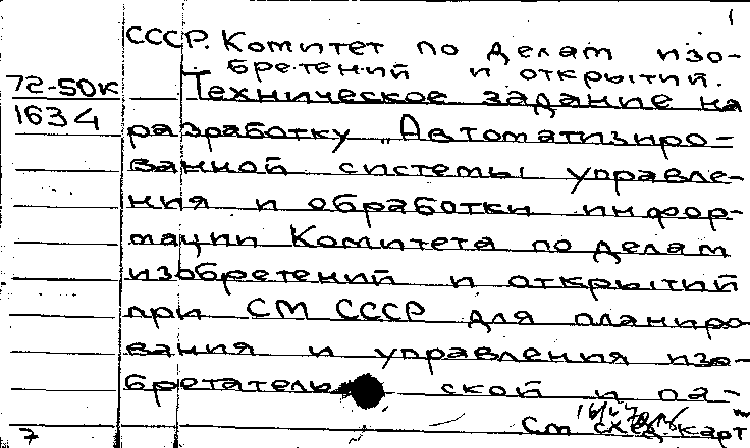 1
СССР. Комитет по делам изо-
бретений и открытий.
72-50к Техническое задание на
1634 разработку „Автоматизиро-
ванной системы управле-
ния и обработки инфор-
мации Комитета по делам
изобретений и открытий
при СМ СССР для планиро
вания и управления изо-
бретатель ской и ра-
7 См след. карт